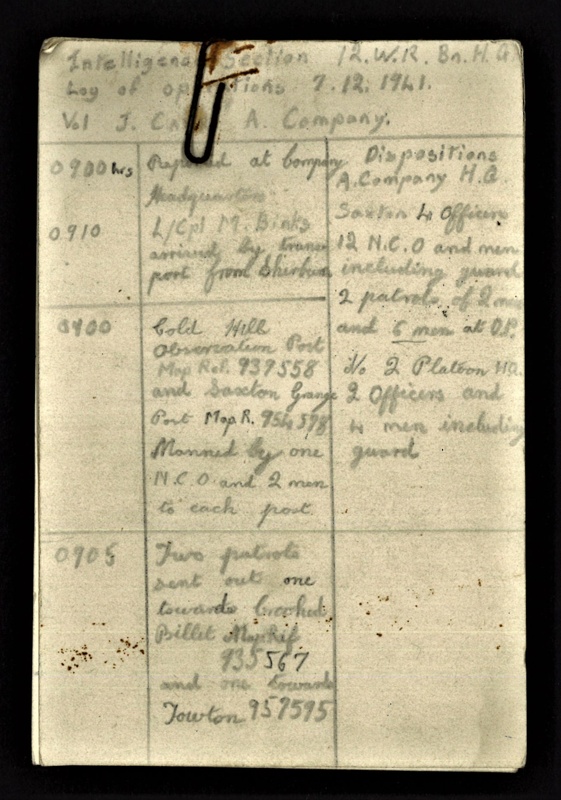 Intelligence Section 12.W.R. Bn. H.G
Log of operations 7.12.1941.
Vol J. A. Company.
0900 hrs
Reported at Company
Headquarters
0910
L/Cpl M. Binks
arrived by trans
port from Sherburn
0900
Cold Hill
Observation Post
Map Ref. 937558
and Saxton Grange
Post Map R. 954578
Manned by one
N.C.O and 2 men
to each post
0905
Two patrols
sent out one
towards Crooked
Billet Map Ref
935567
and one towards
Towton 957595
Dispositions
A. Company H.Q.
Saxton 4 Officers
12 N.C.O and men
including guard
2 patrols of 2 men
and 6 men at O.P.
No 2 Platoon HQ.
2 Officers and
4 men including
guard